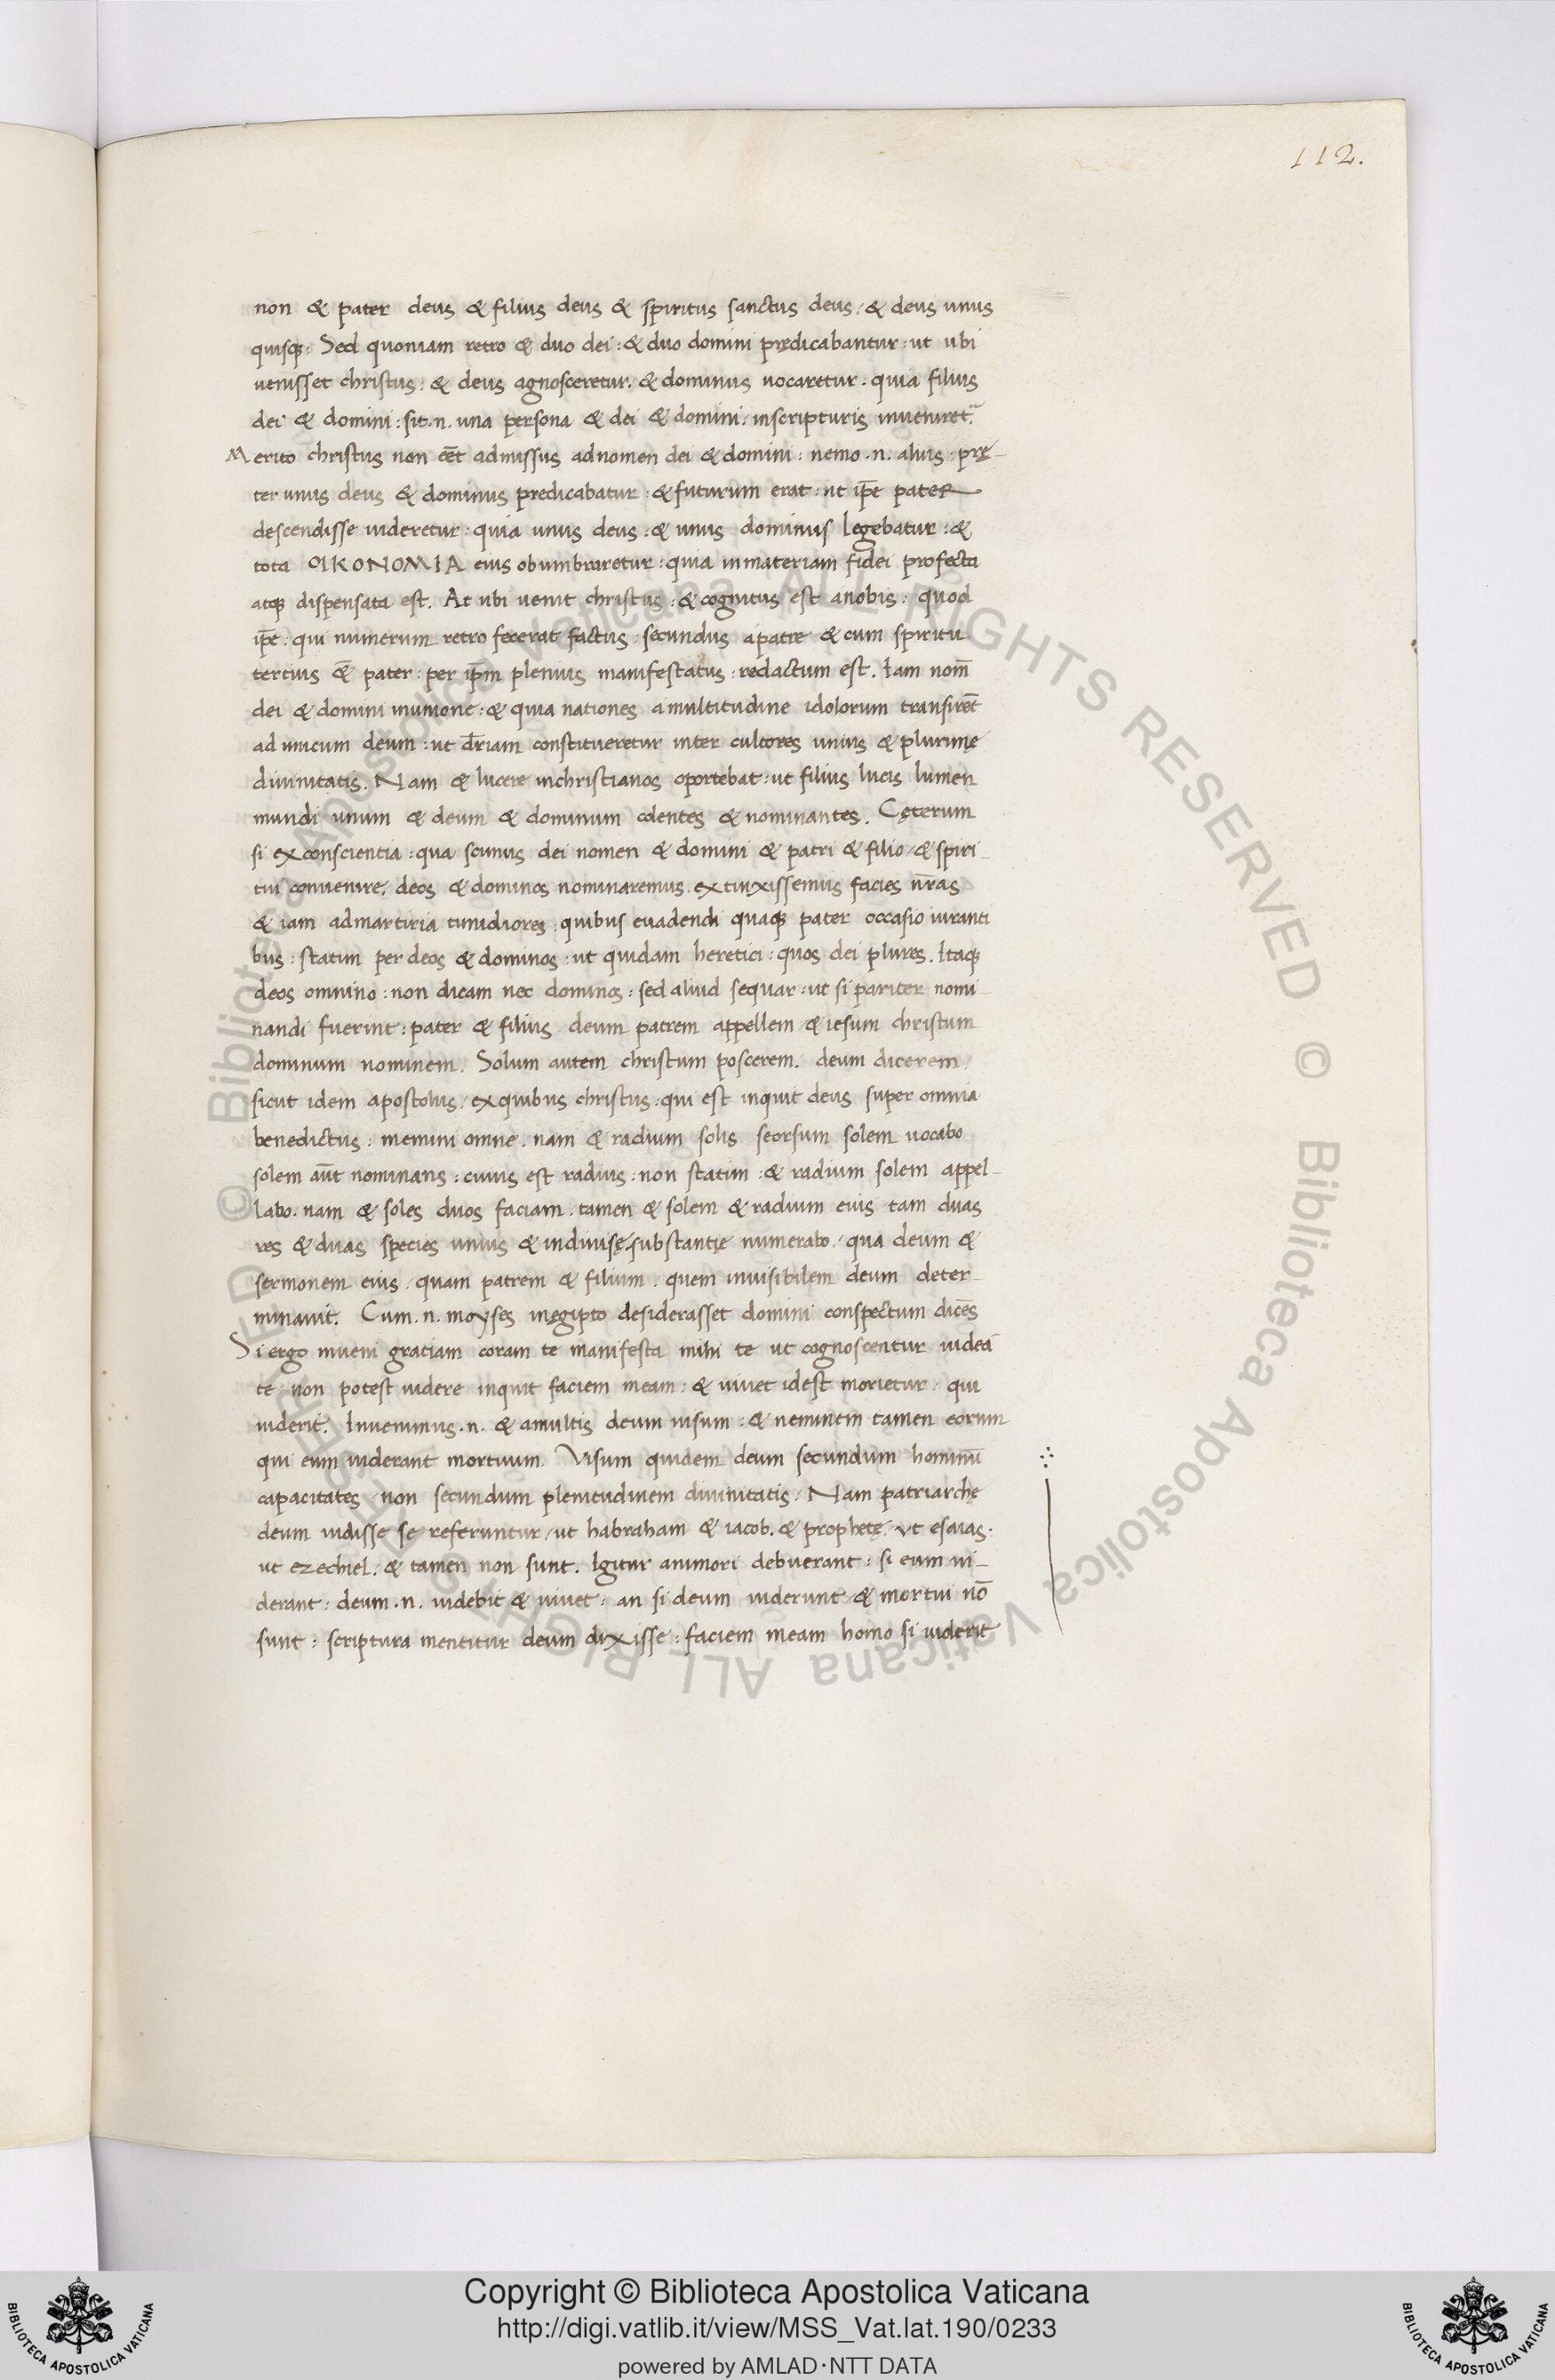 112.
non & pater deus & filius deus & spiritus sanctus deus / & deus unus
quisqꝫ : Sed quoniam retro & duo dei : & duo domini prędicabantur : ut ubi
uenisset christus : & deus agnosceretur . & dominus uocaretur . quia filius
dei & domini : sit . n . una persona & dei & domini . inscripturis inueniret᷑
Merito christus non eēt admissus adnomen dei & domini : nemo . n . alius : prę–
ter unus deus & dominus predicabatur : & futurum erat : ut ip̄e pater
descendisse uideretur : quia unus deus : & unus dominus legebatur : &
tota OIKONOMIA eius obumbraretur : quia inmateriam fidei profecta
atqꝫ dispensata est . At ubi uenit christus : & cognitus est anobis : quod
ip̄e : qui numerum retro fecerat factus : secundus apatre & cum spiritu
tertius & pater : per ip̄m plenius manifestatus : redactum est . Iam nom̄
dei & domini inunione : & quia nationes amultitudine idolorum transirēt
ad unicum deum : ut dr̄iam constitueretur inter cultores unius & plurimę
diuinitatis . Nam & lucere inchristianos oportebat : ut filius lucis lumen
mundi unum & deum & dominum colentes & nominantes . Cęterum
si exconscientia : qua scimus dei nomen & domini & patri & filio / & spiri–
tui conuenire . deos & dominos nominaremus . extinxissemus facies nr̄as
& iam admartiria timidiores : quibus euadendi quaqꝫ pater occasio iuranti
bus : statim per deos & dominos : ut quidam heretici : quos dei plures . Itaqꝫ
deos omnino : non dicam nec dominos : sed aliud sequar : ut si pariter nomi–
nandi fuerint : pater & filius deum patrem appellem & iesum christum
dominum nominem . Solum autem christum poscerem . deum dicerem /
sicut idem apostolus / exquibus christus : qui est inquit deus super omnia
benedictus : memini omne . nam & radium solis seorsum solem uocabo
solem aūt nominans : cuius est radius : non statim : & radium solem appel–
labo . nam & soles duos faciam . tamen & solem & radium eius tam duas
res & duas species unius & indiuisę substantię numerabo . qua deum &
sermonem eius / quam patrem & filium . quem inuisibilem deum deter–
minauit . Cum . n . moyses inęgipto desiderasset domini conspectum dicēs
Si ergo inueni gratiam coram te manifesta mihi te ut cognoscentur uideā
te / non potest uidere inquit faciem meam : & uiuet idest morietur : qui
uiderit . Inuenimus . n . & amultis deum uisum : & neminem tamen eorum
qui eum uiderant mortuum . Visum quidem deum secundum hominū
capacitates / non secundum plenitudinem diuinitatis . Nam patriarchę
deum uidisse se referuntur / ut habraham & iacob . & prophetę / ut esaias .
ut ezechiel . & tamen non sunt . Igitur animori debuerant : si eum ui–
derant : deum . n . uidebit & uiuet : an si deum uiderunt & mortui nō
sunt : scriptura mentitur deum dixisse : faciem meam homo si uiderit
© Biblioteca Apostolica Vaticana ALL RIGHTS RESERVED © Biblioteca Apostolica Vaticana ALL RIGHTS RESERVED
Copyright © Biblioteca Apostolica Vaticana
http://digi.vatlib.it/view/MSS_Vat.lat.190/0233
powered by AMLAD·NTT DATA
BIBLIOTECA APOSTOLICA VATICANA
BIBLIOTECA APOSTOLICA VATICANA